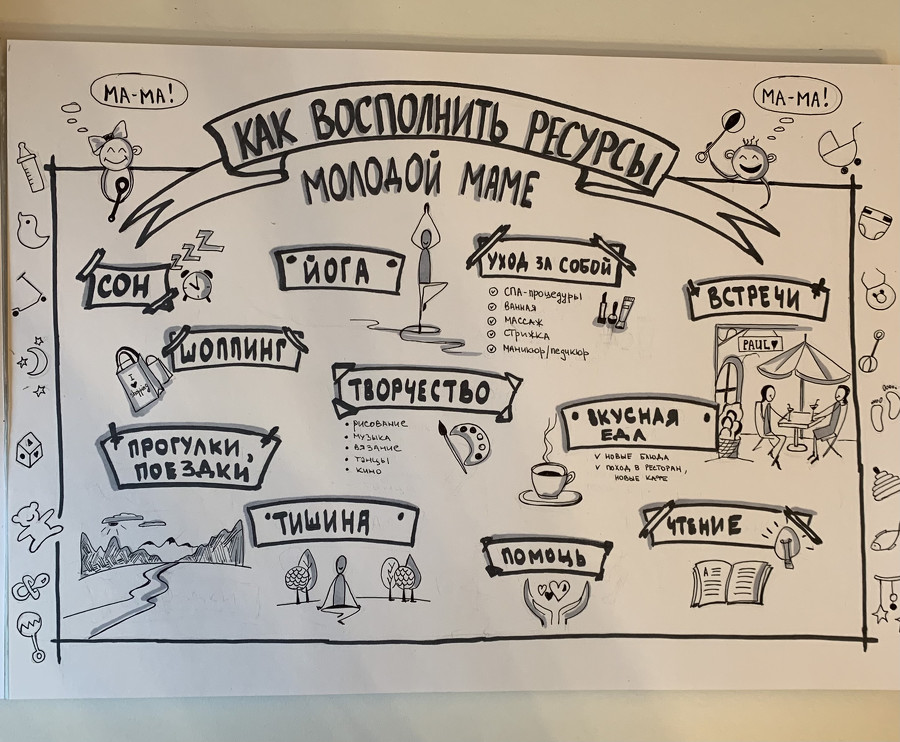 МА-МА!
МА-МА!
КАК ВОСПОЛНИТЬ РЕСУРСЫ
МОЛОДОЙ МАМЕ
СОН
ZZZ
ЙОГА
УХОД ЗА СОБОЙ
СПА-процедуры
ВАННАЯ
МАССАЖ
СТРИЖКА
МАНИКЮР/ПЕДИКЮР
ВСТРЕЧИ
PAUL
ШОППИНГ
ТВОРЧЕСТВО
• РИСОВАНИЕ
• МУЗЫКА
• ВЯЗАНИЕ
• ТАНЦЫ
• КИНО
ВКУСНАЯ
ЕДА
НОВЫЕ БЛЮДА
ПОХОД В РЕСТОРАН,
НОВЫЕ КАФЕ
ПРОГУЛКИ,
ПОЕЗДКИ
ТИШИНА
ПОМОЩЬ
ЧТЕНИЕ
А